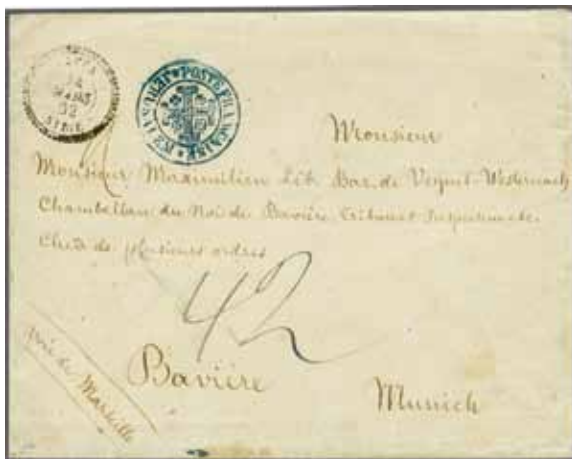 14
MARS
52
SYRIE
POSTE FRANCAISE * JERUSALEM
Monsieur
Monsieur Maximilien Lib. Bar. de
Chambellan du Roi de Bavière
Chev. de plusieurs ordres
42
voie de Marseille
Bavière
Munich